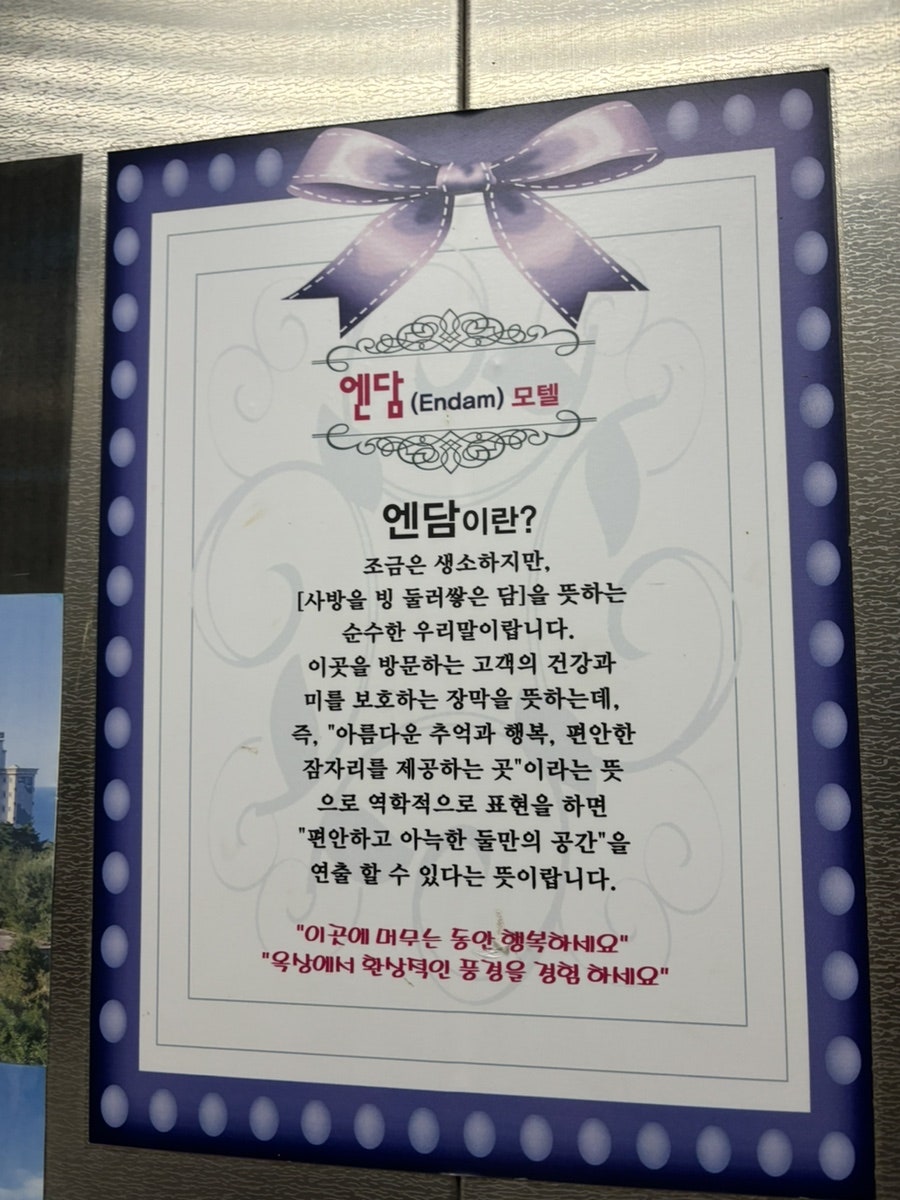 엔담 (Endam) 모텔
엔담이란?
조금은 생소하지만,
[사방을 빙 둘러쌓은 담]을 뜻하는
순수한 우리말이랍니다.
이곳을 방문하는 고객의 건강과
미를 보호하는 장막을 뜻하는데,
즉, "아름다운 추억과 행복, 편안한
잠자리를 제공하는 곳"이라는 뜻
으로 역학적으로 표현을 하면
"편안하고 아늑한 둘만의 공간"을
연출 할 수 있다는 뜻이랍니다.
"이곳에 머무는 동안 행복하세요"
"옥상에서 환상적인 풍경을 경험 하세요"